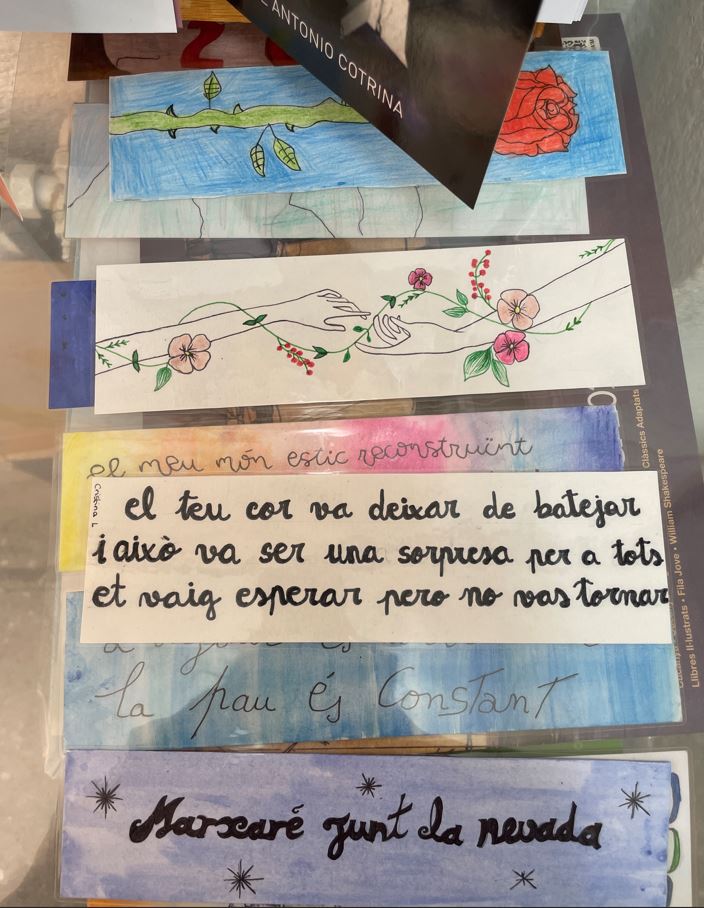 ANTONIO COTRINA
el meu món estic reconstruint
Cristina L
el teu cor va deixar de batejar
i això va ser una sorpresa per a tots
et vaig esperar pero no vas tornar
la pau és Constant
Marxaré junt la nevada
Clàssics Adaptats
Llibres Il·lustrats • Fila Jove • William Shakespeare